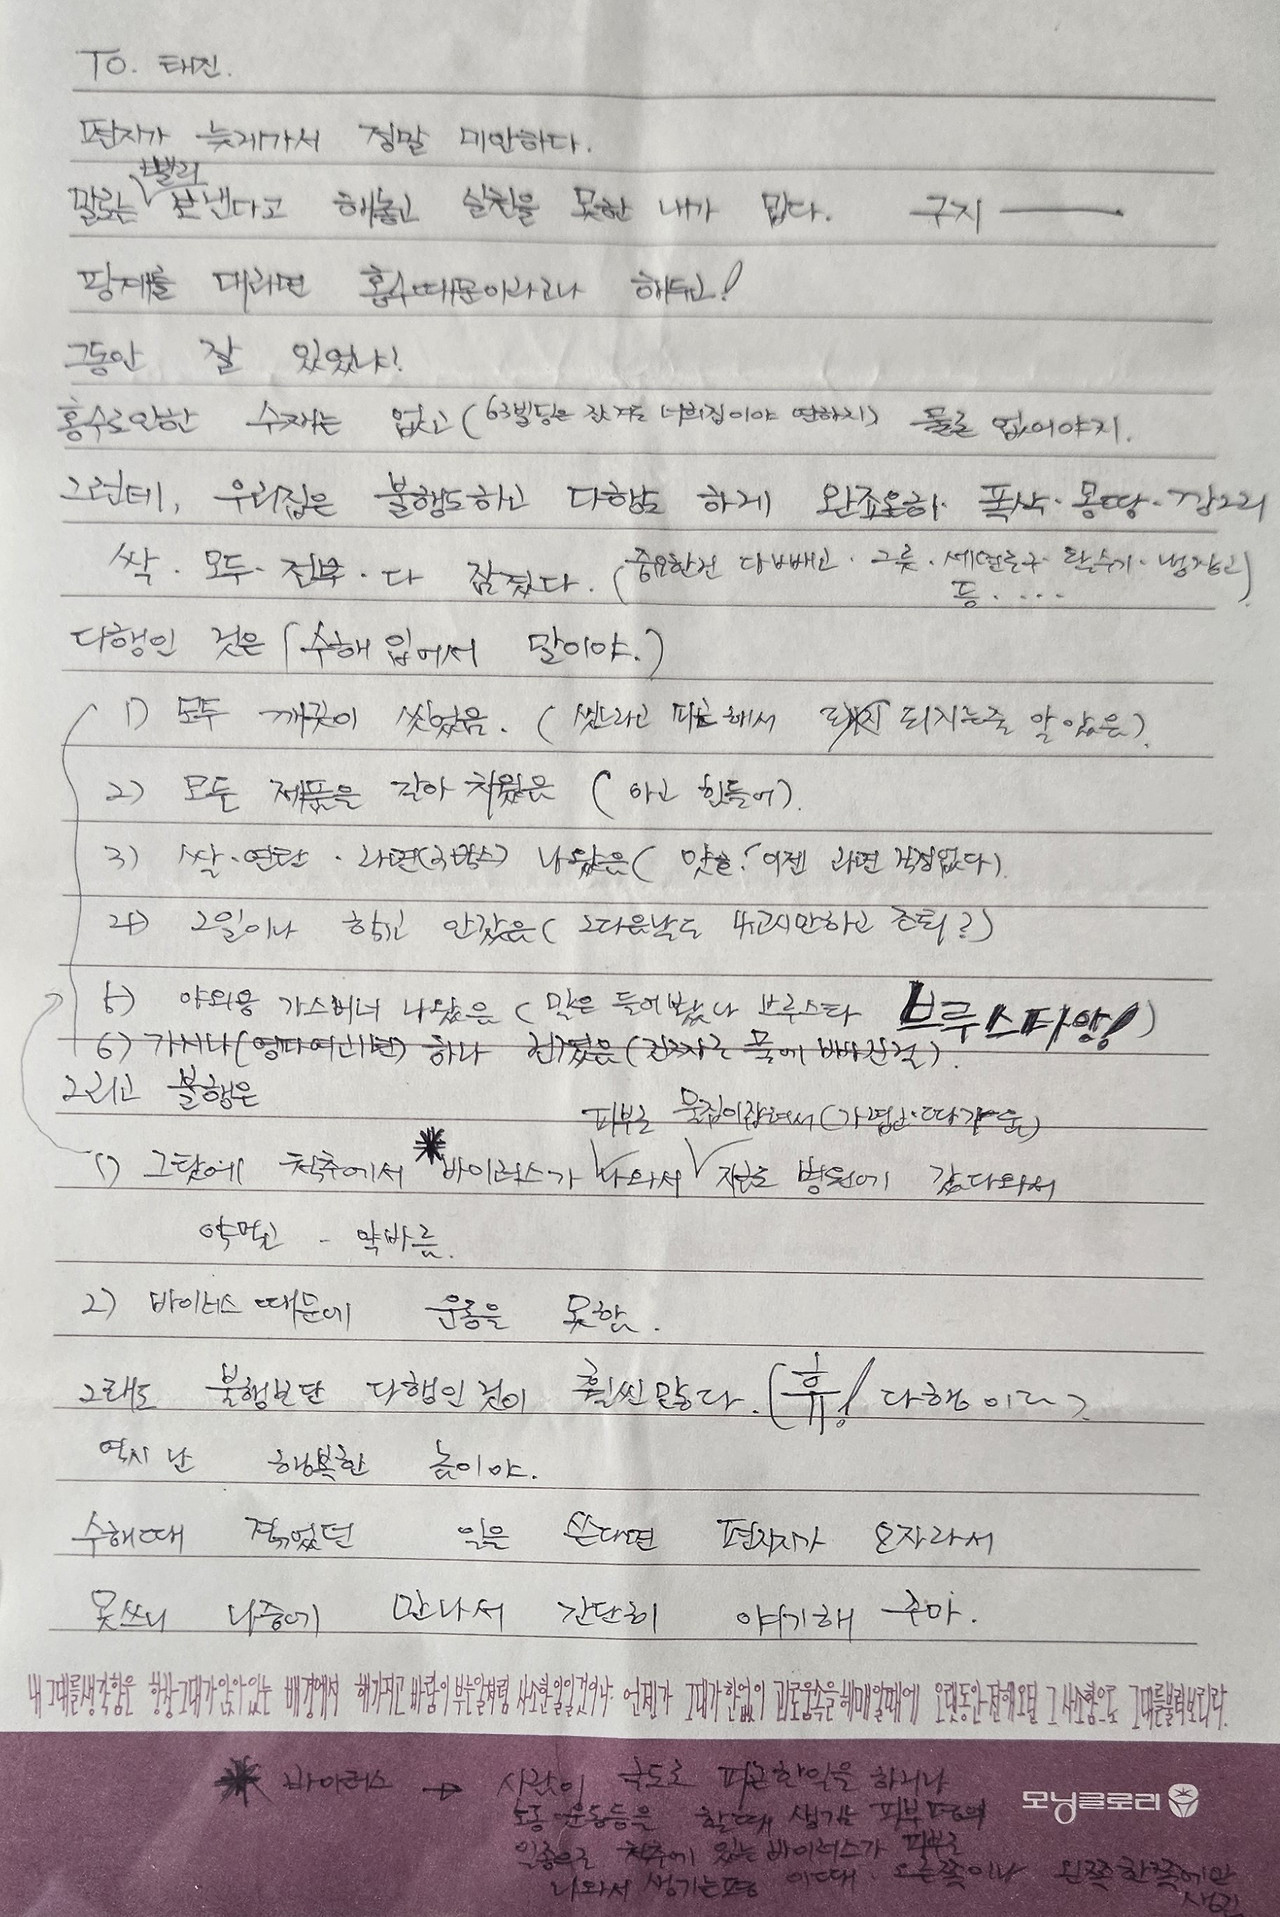 To. 태진.
편지가 늦게가서 정말 미안하다.
말로는 빨리 보낸다고 해놓고 실천을 못한 내가 밉다. 구지 ―
핑계를 대라면 홍수때문이라고나 해두고!
그동안 잘 있었냐!
홍수로인한 수재는 없고(63빌딩은 잠겨도 너희집이야 안전하지) 물론 없어야지.
그런데, 우리집은 불행도하고 다행도 하게 완죠온하 폭삭·몽땅·깡그리
싹·모두·전부·다 잠겼다. (중요한건 다빼고·그릇·세면도구·탈수기·냉장고
등. ...)
다행인 것은 (수해 입어서 말이야.)
1) 모두 깨끗이 씻었음. (씻느라고 피곤해서 되지는줄 알았음).
2) 모두 제품을 갈아 치웠음 (아고 힘들어).
3) 쌀·연탄·라면(2박스) 나왔음( 맛하! 이젠 라면 걱정없다).
4) 2일이나 학교 안갔음( 그다음날도 4교시만하고 조퇴?)
5) 야외용 가스버너 나왔음 ( 말은 들어봤나 브루스타 브루스타앙!)
6) 가시나(옆다여리현) 하나 건졌음(진흙자근 물에 빠진걸).
그리고 불행은
피부로 물집이잡혀서(가렵고·따가움)
1) 그탓에 척추에서 *바이러스가 나와서 지금도 병원에 갔다와서
약먹고 - 약바름.
2) 바이러스 때문에 운동을 못함.
그래도 불행보단 다행인것이 훨씬 많다. (휴! 다행이다)
역시 난 행복한 놈이야.
수해때 겪었던 일을 쓴다면 편지지가 모자라서
못쓰니 나중에 만나서 간단히 얘기해 주마.
내 그대를생각함은 항상그대가앉아있는 배경에서 해가지고 바람이 부는일처럼 사소한일일것이나 언젠가 그대가한없이 괴로움속을헤매일때에 오랫동안전해오던 그 사소함으로 그대를불러보리라.
* 바이러스 → 사람이 극도로 피곤한일을 하거나
노동·운동등을 할때 생기는 피부병의
일종으로 척추에 있는 바이러스가 피부로
나와서 생기는병 이때·오른쪽이나 왼쪽한쪽에만
생김
모닝글로리